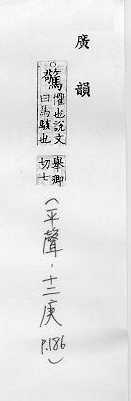 廣韻
○驚懼也說文曰馬駭也舉卿切十一
(平聲·十二庚 P.186)